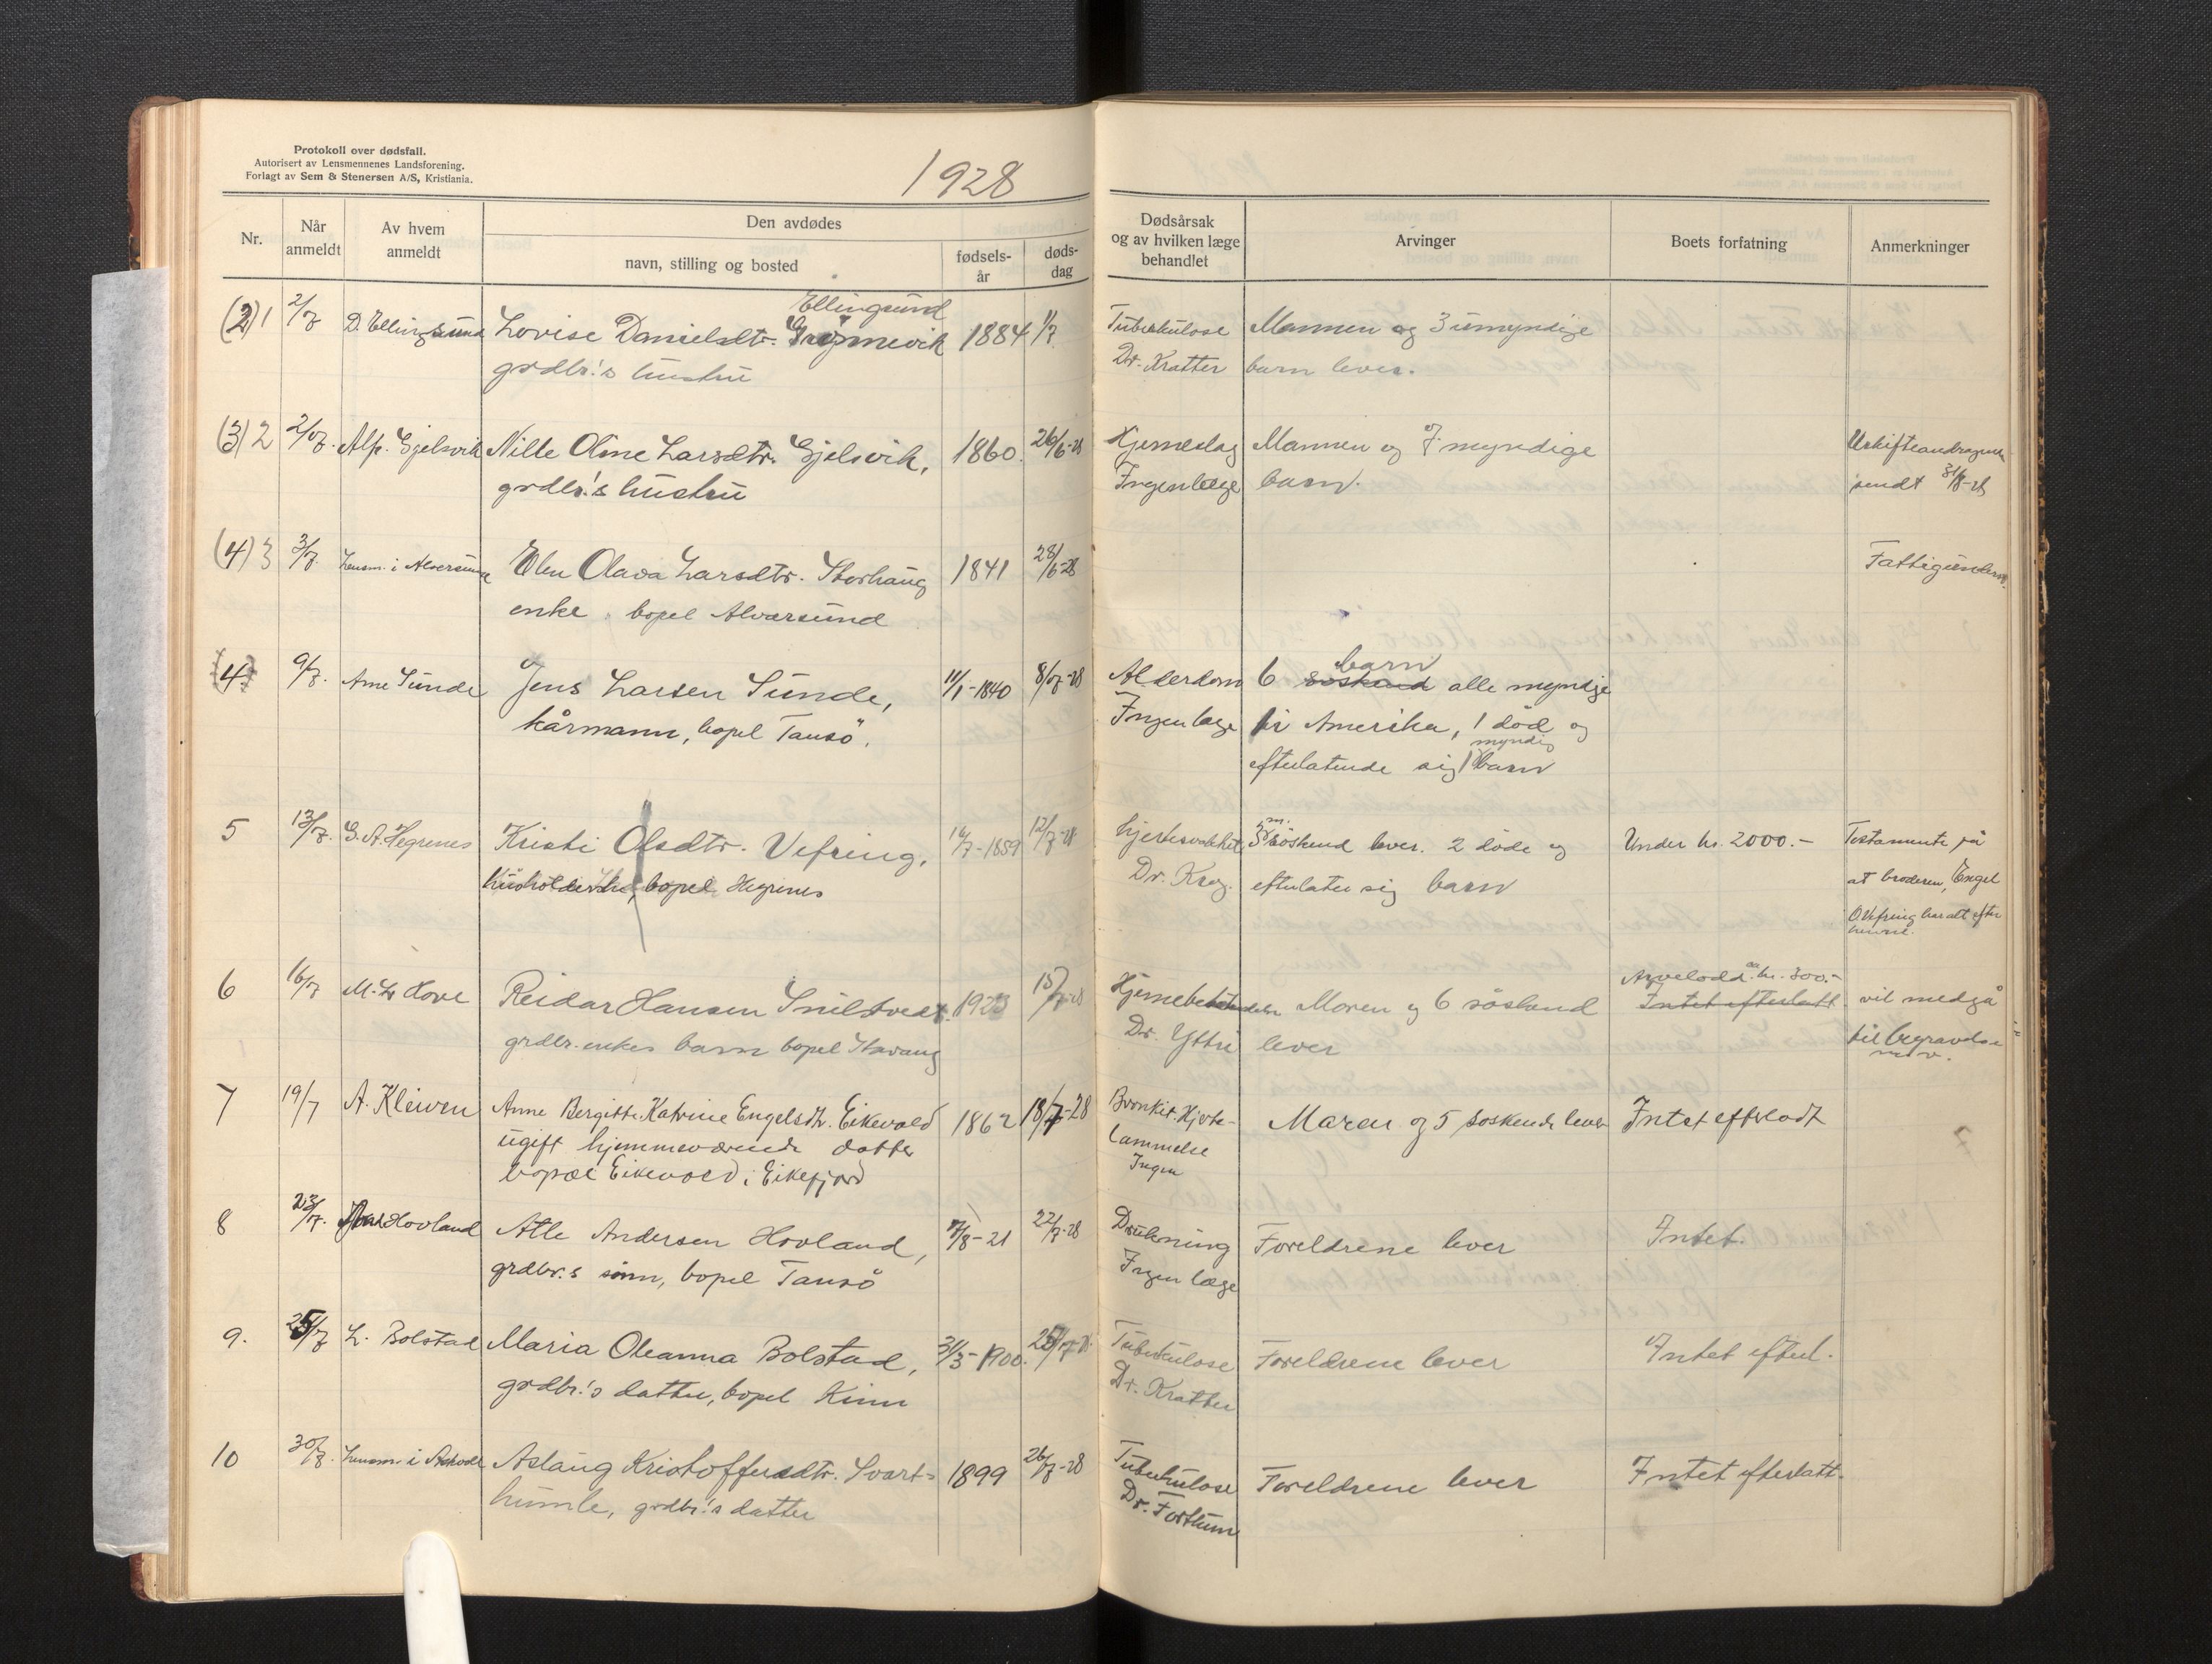 Protokoll over dødsfall.
Autorisert av Lensmennenes Landsforening.
Forlagt av Sem & Stenersen A/S, Kristiania.
1928
Nr.
Når anmeldt
Av hvem anmeldt
Den avdødes
navn, stilling og bosted
fødsels-år
døds-dag
Dødsårsak og av hvilken læge behandlet
Arvinger
Boets forfatning
Anmerkninger
(2) 1 2/7 D. Ellingsund Lovise Danielsdtr. Ellingsund 1884 1/7 Tuberkulose Mannen og 3 umyndige
grdbr.'s hustru Dr. Kratter barn lever.
(3) 2 2/7. Alf. Gjelsvik Nille Oline Larsdtr. Gjelsvik, 1860. 26/6-28 Hjerneslag Mannen og 7 myndige
grdbr.'s hustru Ingen læge barn.
sendt 31/8-28
(4) 3 3/7. Lensm. i Alversund Elen Olava Larsdtr. Storhaug 1841 28/6-28
enke, bopel Alvarsund
4 9/7. Arne Sunde Jens Larsen Sunde, 11/1-1840 8/7-28 Alderdom 6 søskend barn alle myndige
kårmann, bopel Tansö. Ingen læge i Amerika, 1 död og
efterlatende sig 1 myndig barn
5 13/7. G. A. Hegrenes Kristi Olsdtr. Vefring, 16/7-1859 12/7-28 hjertesvakhet søskend lever. 2 döde og Under kr. 2000.- Testamente på
husholderske, bopel Hegrenes Dr. Krog. efterlater sig barn at broderen, Engel
O. Vefring har alt efter
henne.
6 16/7 M. L. Hove Reidar Hansen 1923 15/7-28 Hjernebetendelse Moren og 6 söskend Arvelodd ca. kr. 300.- Intet efterlatt vil medgå
grdbr. enkes barn bopel Stavang Dr. Yttri lever til begravelse
m.v.
7 19/7 A. Kleiven Anne Bergitte Katrine Engelsdtr. Eikevold 1862 18/7-28 Bronkit. Hjerte- Moren og 5 søskende lever Intet efterladt
ugift hjemmeværende datter lammelse
bopæl Eikevold i Eikefjord Ingen
8 23/7. Hovland Atle Andersen Hovland, 7/8-21 22/7-28 Drukning Foreldrene lever Intet.
grdbr.s sönn, bopel Tansö Ingen læge
9. 25/7 L. Bolstad Maria Oleanna Bolstad, 31/3-1900. Tuberkulose Foreldrene lever Intet efterl.
grdbr.'s datter, bopel Kinn Dr. Kratter
10 30/7. Lensm. i Askvoll Aslaug Kristoffersdtr. Svart- 1899 26/7-28 Tuberkulose Foreldrene lever Intet efterlatt.
humle, grdbr.'s datter Dr. Forthun